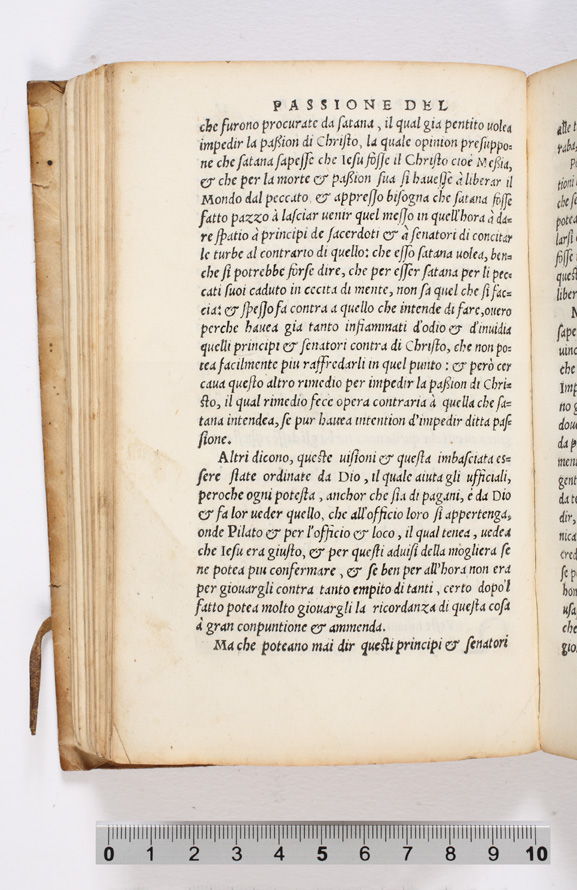 PASSIONE DEL
che furono procurate da ſatana, il qual gia pentito uolea
impedir la paßion di Chriſto, la quale opinion preſuppo=
ne che ſatana ſapeſſe che Ieſu foſſe il Chriſto cioè Meßia,
& che per la morte & paßion ſua ſi haueſſe à liberar il
Mondo dal peccato, & appreſſo biſogna che ſatana foſſe
fatto pazzo à laſciar uenir quel meſſo in quell'hora à da=
re ſpatio à principi de ſacerdoti & à ſenatori di concitar
le turbe al contrario di quello: che eſſo ſatana uolea, ben=
che ſi potrebbe forſe dire, che per eſſer ſatana per li pec=
cati ſuoi caduto in cecita di mente, non ſa quel che ſi fac=
cia: & ſpeſſo fa contra a quello che intende di fare, ouero
perche hauea gia tanto infiammati d'odio & d'inuidia
quelli principi & ſenatori contra di Chriſto, che non po=
tea facilmente piu raffredarli in quel punto: & però cer
caua queſto altro rimedio per impedir la paßion di Chri=
ſto, il qual rimedio fece opera contraria à quella che ſa=
tana intendea, ſe pur hauea intention d'impedir ditta paſ=
ſione.
Altri dicono, queſte uiſioni & queſta imbaſciata eſ=
ſere ſtate ordinate da Dio, il quale aiuta gli ufficiali,
peroche ogni poteſta, anchor che ſia di pagani, è da Dio
& fa lor ueder quello, che all'officio loro ſi appertenga,
onde Pilato & per l'officio & loco, il qual tenea, uedea
che Ieſu era giuſto, & per queſti aduiſi della mogliera ſe
ne potea piu confermare, & ſe ben per all'hora non era
per giouargli contra tanto empito di tanti, certo dopo'l
fatto potea molto giouargli la ricordanza di queſta coſa
à gran conpuntione & ammenda.
Ma che poteano mai dir queſti principi & ſenatori
0 1 2 3 4 5 6 7 8 9 10